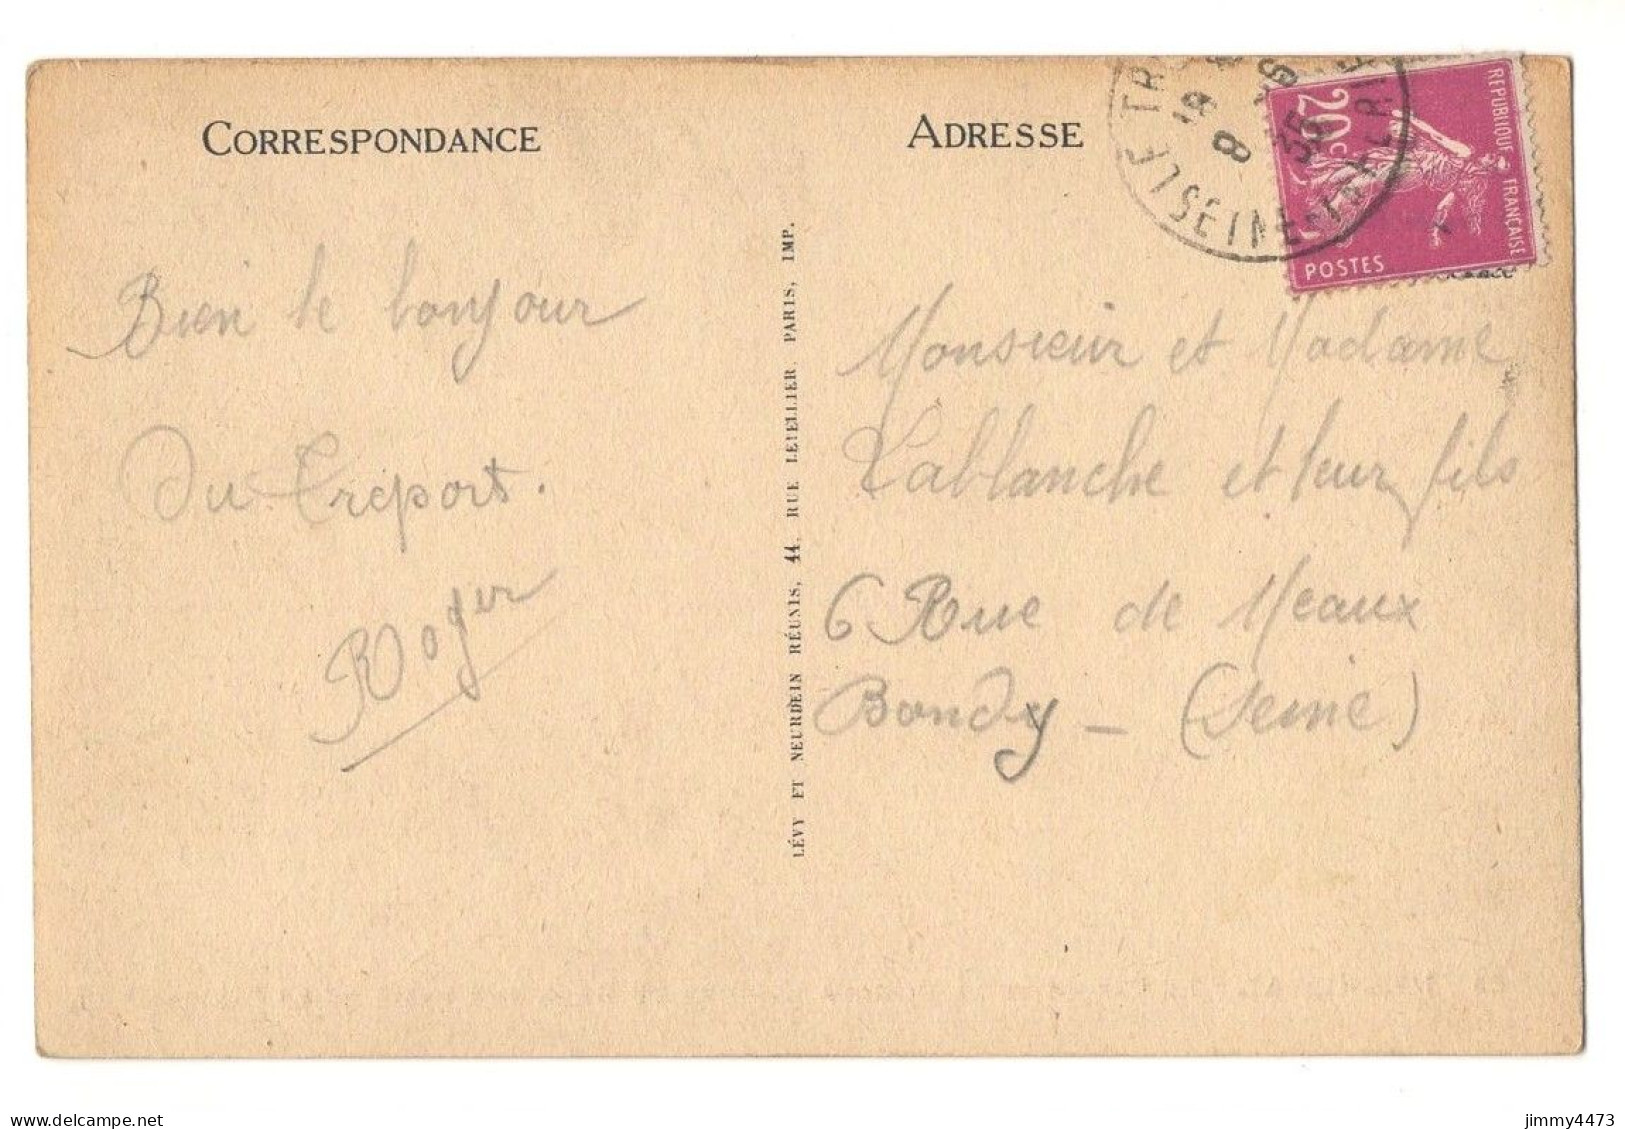 CORRESPONDANCE
Bien le bonjour
Du Tréport.
Roger
LÉVY ET NEURDEIN RÉUNIS, 44, RUE LETELLIER, PARIS, IMP.
ADRESSE
LE TR
SEINE-INFÉRIE
8
35
20c
REPUBLIQUE FRANÇAISE
POSTES
Monsieur et Madame
Lablanche et leur fils
6 Rue de Meaux
Bondy - (Seine)
www.delcampe.net
jimmy4473